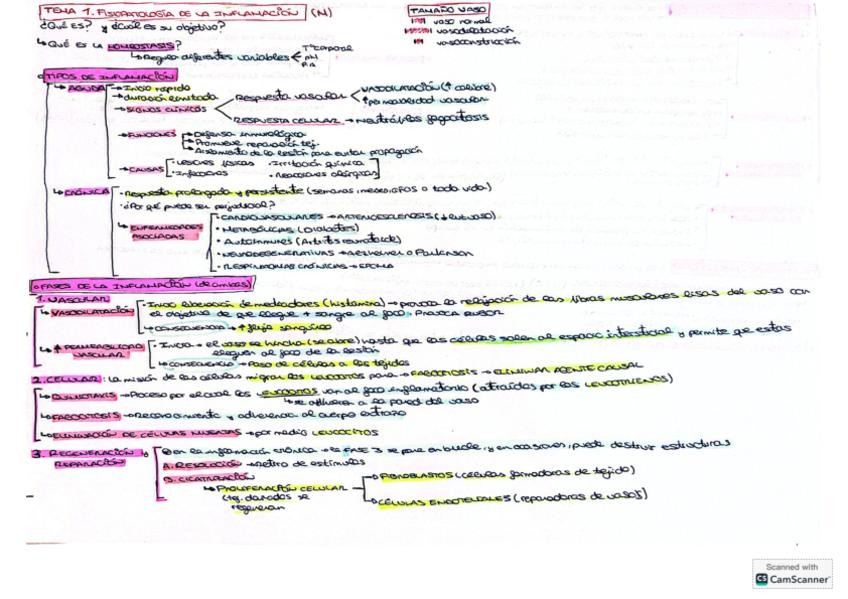 TEMA 1. FISIOPATOLOGÍA DE LA INFLAMACIÓN (N)
TAMAÑO VASO
vaso normal
vasodilatación
vasoconstricción
¿Qué es? y ¿cuál es su objetivo?
↳ QUÉ ES LA HOMEOSTASIS?
↳ Regula diferentes variables
Tª corporal
pH
TIPOS DE INFLAMACIÓN
↳ AGUDA
• Inicio rápido
• duración limitada
• SIGNOS CLÍNICOS
Respuesta vascular
VASODILATACIÓN (↑ calibre)
↑ permeabilidad vascular
RESPUESTA CELULAR → neutrófilos fagocitosis
• FUNCIONES
Defensa inmunológica
Promueve reparación tej.
Aislamiento de la lesión para evitar propagación
• CAUSAS
• Lesiones físicas • Irritación química
• Infecciones • Reacciones alérgicas
↳ CRÓNICA
• Respuesta prolongada y persistente (semanas, meses, años o toda vida)
• ¿Por qué puede ser perjudicial?
↳ ENFERMEDADES ASOCIADAS
• CARDIOVASCULARES → ARTEROESCLEROSIS
• METABÓLICAS (Diabetes)
• Autoinmunes (Artritis reumatoide)
• NEURODEGENERATIVAS → Alzheimer o Parkinson
• RESPIRATORIAS CRÓNICAS → EPOC
FASES DE LA INFLAMACIÓN
1. VASCULAR
↳ VASODILATACIÓN
• Inicio liberación de mediadores (histamina) → provoca la relajación de las fibras musculares lisas del vaso con
el objetivo de que llegue + sangre al foco. PROVOCA RUBOR
↳ CONSECUENCIA → ↑ flujo sanguíneo
↳ ↑ PERMEABILIDAD VASCULAR
• Inicio → el vaso se hincha (se abre) hasta que las células salen al espacio intersticial y permite que estas
lleguen al foco de la lesión
↳ CONSECUENCIA → Paso de células a los tejidos
2. CELULAR: la misión de las células migran los leucocitos para → FAGOCITOSIS → ELIMINAR AGENTE CAUSAL
→ Proceso por el cual los leucocitos van al foco inflamatorio (atraídos por los LEUCOTRIENOS)
↳ se adhieren a la pared del vaso
↳ FAGOCITOSIS → Reconocimiento y adherencia al cuerpo extraño
↳ ELIMINACIÓN DE CÉLULAS MUERTAS → por medio LEUCOCITOS
3. REGENERACIÓN y REPARACIÓN
en la inflamación crónica → la FASE 3 se para en bucle, y en ocasiones, puede destruir estructuras
A. RESOLUCIÓN → Retiro de estímulos
B. CICATRIZACIÓN
↳ PROLIFERACIÓN CELULAR
(tej. dañados se
regeneran
FIBROBLASTOS (células formadoras de tejido)
CÉLULAS ENDOTELIALES (reparadoras de vasos)
Scanned with
CS CamScanner